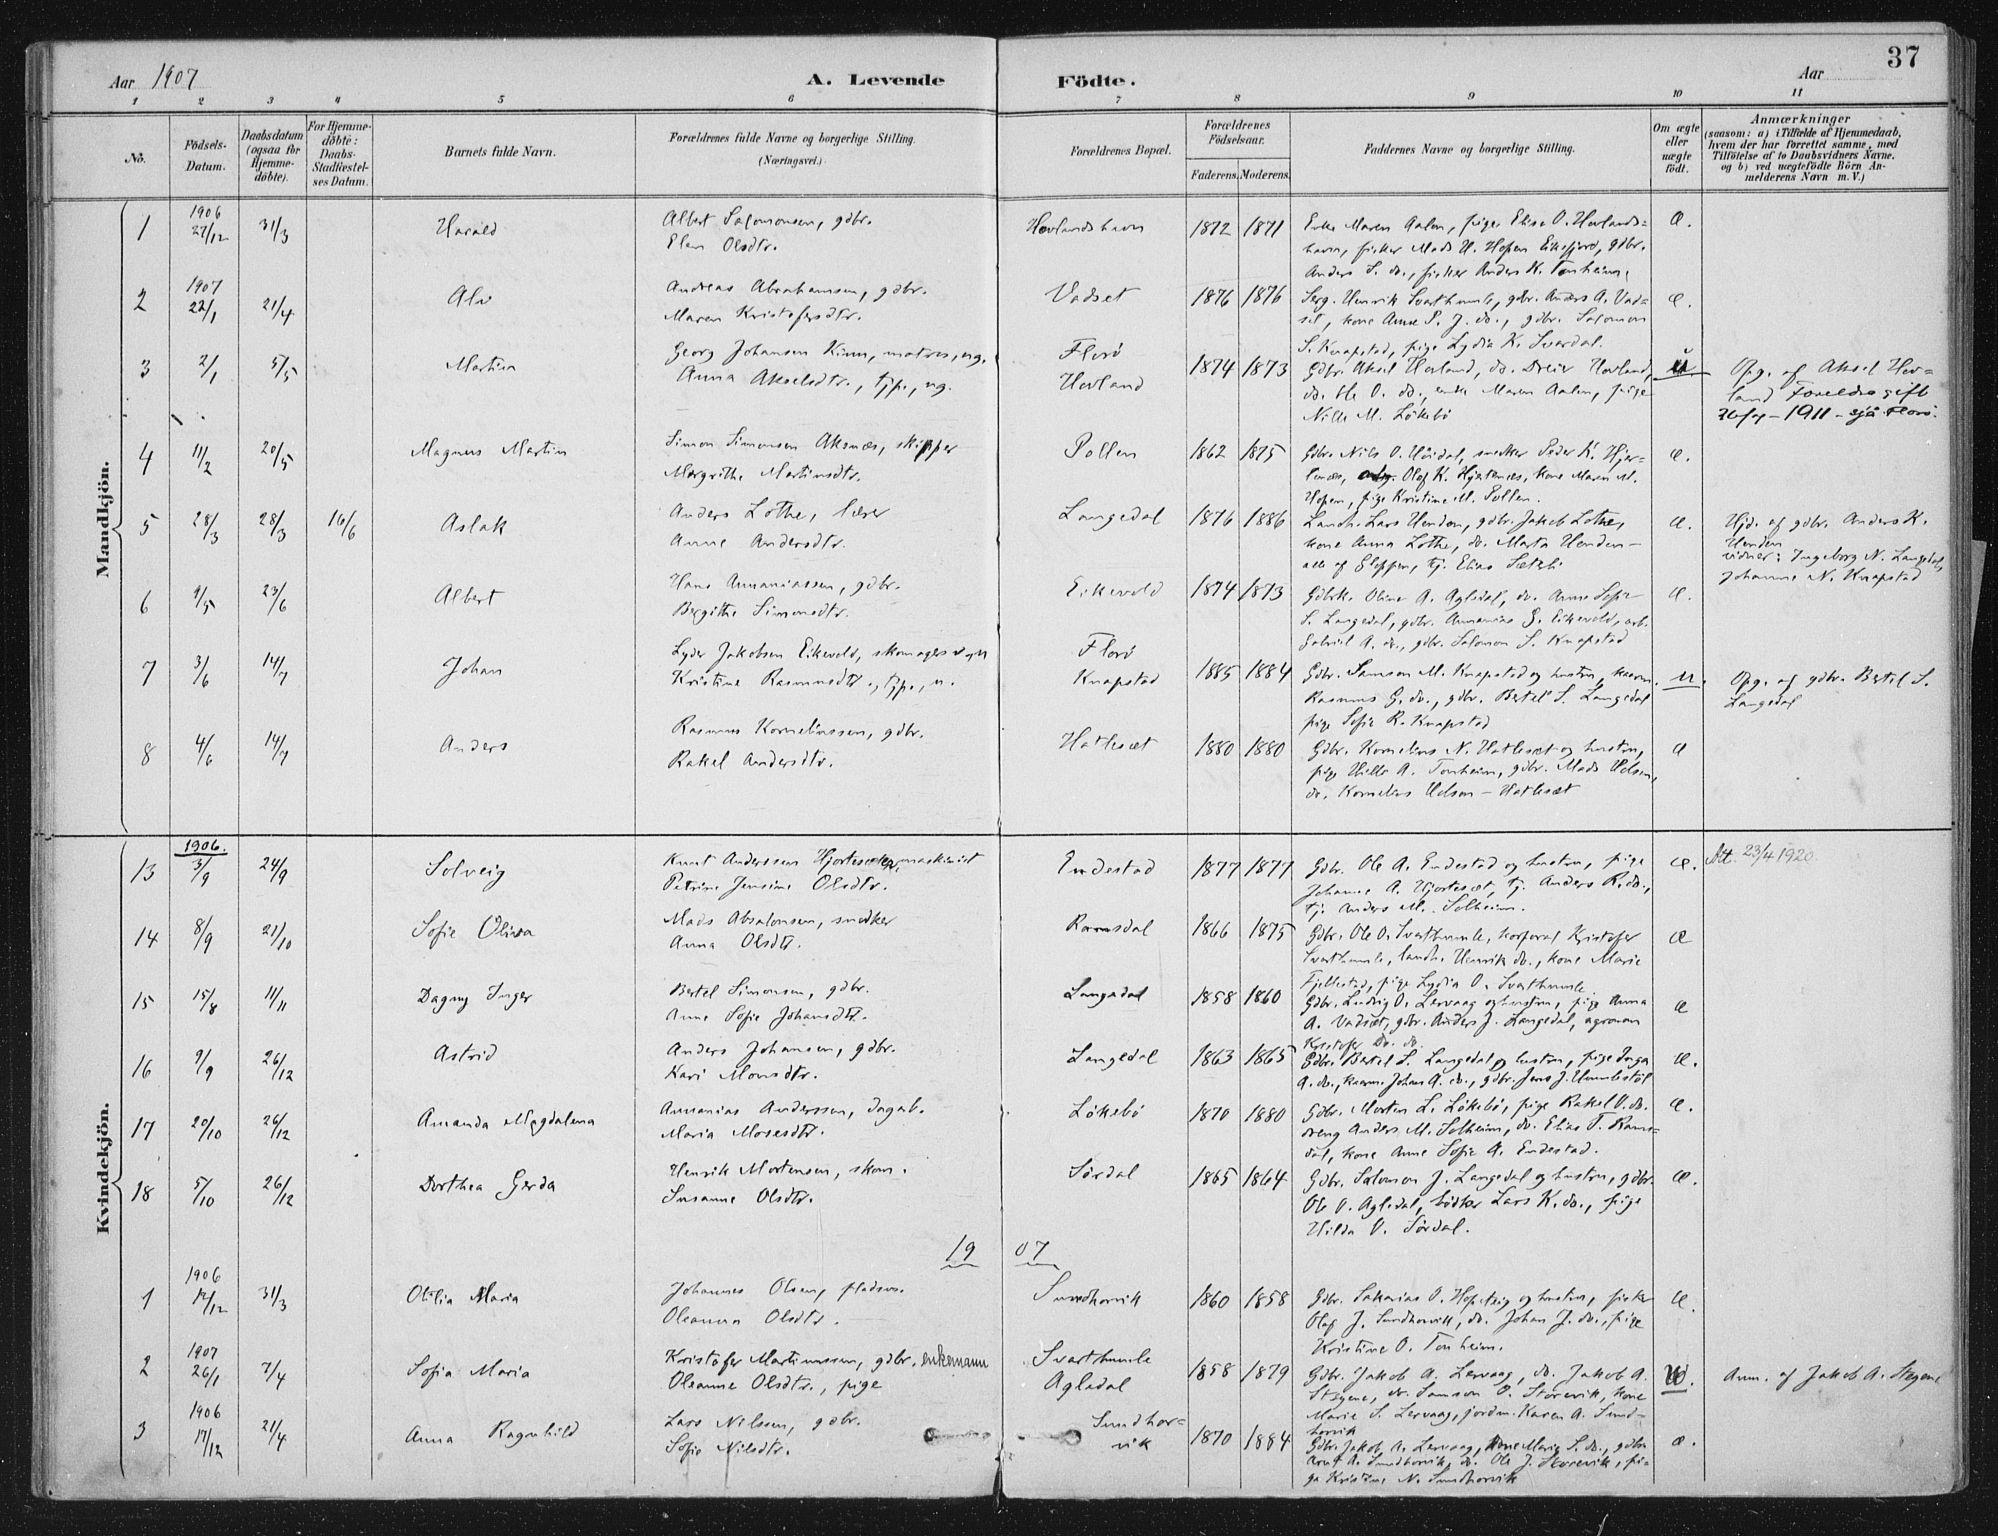 37
Aar 1907 A. Levende Födte. Aar
1 2 3 4 5 6 7 8 9 10 11
No. Födsels-Datum. Daabsdatum (ogsaa for Hjemmedöbte). For Hjemmedöbte: Daabs-Stadfæstelses Datum. Barnets fulde Navn. Forældrenes fulde Navne og borgerlige Stilling. (Næringsvei.) Forældrenes Bopæl. Forældrenes Födselsaar. Faderens. Moderens. Faddernes Navne og borgerlige Stilling. Om ægte eller uægte födt. Anmærkninger (saasom: a) i Tilfælde af Hjemmedaab, hvem der har forrettet samme, med Tilföielse af to Daabsvidners Navne. og b) ved uægtefödte Börn Anmelderens Navn m. V.)
Mandkjön.
1 1906 27/12 31/3 Harald Albert Salomonsen, gdbr. Hovlandshavn 1872 1871 Enke Maren Aalen, pige Elise O. Hovlands-
Elen Olsdtr. havn, fisker Mads H. Hopen Eikefjord, gdbr.
Anders S. do., fisker Anders K. Tonheim.
2 1907 22/1 21/4 Alv Andreas Abrahamsen, gdbr. Vadset 1876 1876 Serg. Henrik Svarthumle, gdbr. Anders A. Vad- æ.
Maren Kristofersdtr. set, kone Anne P. J. do., gdbr. Salomon
S. Knapstad, pige Lydia K. Svardal.
3 2/1 5/5 Martin Georg Johansen Kinn, matros, ug. Florö
Anna Akselsdtr., tjp., ug. Hovland 1874 1873 Gdbr. Aksel Hovland, do. Dreier Hovland, Opg. af Aksel Hov-
do. Ole O. do., enke Maren Aalen, pige land Foreldre gift
Nille M. Lökebö 1911 - sjå Florö.
4 11/2 20/5 Magnus Martin Simon Simonsen Aksnæs, skipper Pollen 1862 1875 Gdbr. Nils O. Höidal, snedker Peder K. Hjer- æ.
Margrithe Martinsdtr. tenæs, Olaf K. Hjertenæs, kone Maren M.
Hopen, pige Kristine M. Pollen.
5 28/3 28/3 16/6 Aslak Anders Lothe, lærer Langedal 1876 1886 Landh. Lars Henden, gdbr. Jakob Lothe, æ. Hjd. af gdbr. Anders K.
Anne Andersdtr. kone Anna Lothe, do. Marta Henden - Henden
alle af Gloppen, tj. Elias vidner: Ingeborg N. Langedal,
Johanne N. Knapstad
6 9/5 23/6 Albert Hans Annaniassen, gdbr. Eikevold 1874 1873 Gdbrk. Oline A. Agledal, do. Anne Sofie æ.
Bergithe Simonsdtr. S. Langedal, gdbr. Annanias G. Eikevold, arb.
Gabriel A. do., gdbr. Salomon S. Knapstad
7 3/6 14/7 Johan Lyder Jakobsen Eikevold, skomagersv. Florö
Kristine Rasmusdtr., tjp., u. Knapstad 1885 1884 Gdbr. Samson M. Knapstad og hustru, u. Opg. af gdbr. Bertel S.
Rasmus G. do., gdbr. Bertel S. Langedal Langedal
pige Sofie R. Knapstad
8 4/6 14/7 Anders Rasmus Korneliussen, gdbr. Hatleset 1880 1880 Gdbr. Kornelius N. Hatleset og hustru, æ
Rakel Andersdtr. pige Hille A. Tonheim, gdbr. Mads Helsen,
do. Kornelius Helsen - Hatleset
Kvindekjön.
1906.
13 3/9 24/9 Solveig Knut Anderssen Hjortesæter, maskinist Endestad 1877 1877 Gdbr. Ole A. Endestad og hustru, pige æ. Att. 23/4 1920.
Petrine Jensine Olsdtr. Johanne A. Hjortesæt, tj. Anders R. do.,
tj. Anders M. Solheim.
14 8/9 21/10 Sofie Oliva Mads Absalonsen, snedker Ramsdal 1866 1875 Gdbr. Ole O. Svarthumle, korporal Kristofer æ
Anna Olsdtr. Svarthumle, landh. Henrik do., kone Marie
Fjellestad, pige Lydia O. Svarthumle
15 15/8 11/11 Dagny Inger Bertel Simonsen, gdbr. Langedal 1858 1860 Gdbr. Ludvig O. Lervaag og hustru, pige Anna æ
Anne Sofie Johansdtr. A. Vadset, gdbr. Anders J. Langedal, agronom
Kristofer do. do.
16 9/9 26/12 Astrid Anders Johansen, gdbr. Langedal 1863 1865 Gdbr. Bertel S. Langedal og hustru, pige Inga æ.
Kari Monsdtr. A. do., Johan A. do., gdbr. Jens J. Humlestöl
17 20/10 26/12 Amanda Magdalena Annanias Anderssen, dagarb. Lökebö 1870 1880 Gdbr. Morten L. Lökebö, pige Rakel O. do. æ.
Maria Mosesdtr. dreng Anders M. Solheim, do. Elias T. Rams-
dal, kone Anne Sofie A. Endestad.
18 5/10 26/12 Dorthea Gerda Henrik Mortensen, skom. Sördal 1865 1864 Gdbr. Salomon J. Langedal og hustru, gdbr. æ.
Susanne Olsdtr. Ole O. Agledal, bödker Lars K. do., pige
Hilda O. Sördal.
1907
1 1906 12/12 31/3 Otilia Maria Johannes Olsen, pladsm. Sundhorvik 1860 1858 Gdbr. Sakarias O. Hopsteig og hustru, fisker æ.
Oleanna Olsdtr. Olaf J. Sundhorvik, do. Johan J. do., pige
Kristine O. Tonheim.
2 1907 26/1 7/4 Sofia Maria Kristofer Martinussen, gdbr. enkemann Svarthumle 1858 1879 Gdbr. Jakob A. Lervaag, do. Jakob A. Anm. af Jakob A. Stegene
Oleanne Olsdtr., pige Agledal Stegene, do. Samson O. Storevik, kone
Marie S. Lervaag, jordm. Karen A. Sund-
horvik
3 1906 17/12 21/4 Anna Ragnhild Lars Nilssen, gdbr. Sundhor- 1870 1884 Gdbr. Jakob A. Lervaag, kone Marie S. do., gdbr. æ.
Sofie Nilsdtr. vik A. Sundhorvik, do. Ole J. Storevik, pi-
ge Kristine N. Sundhorvik